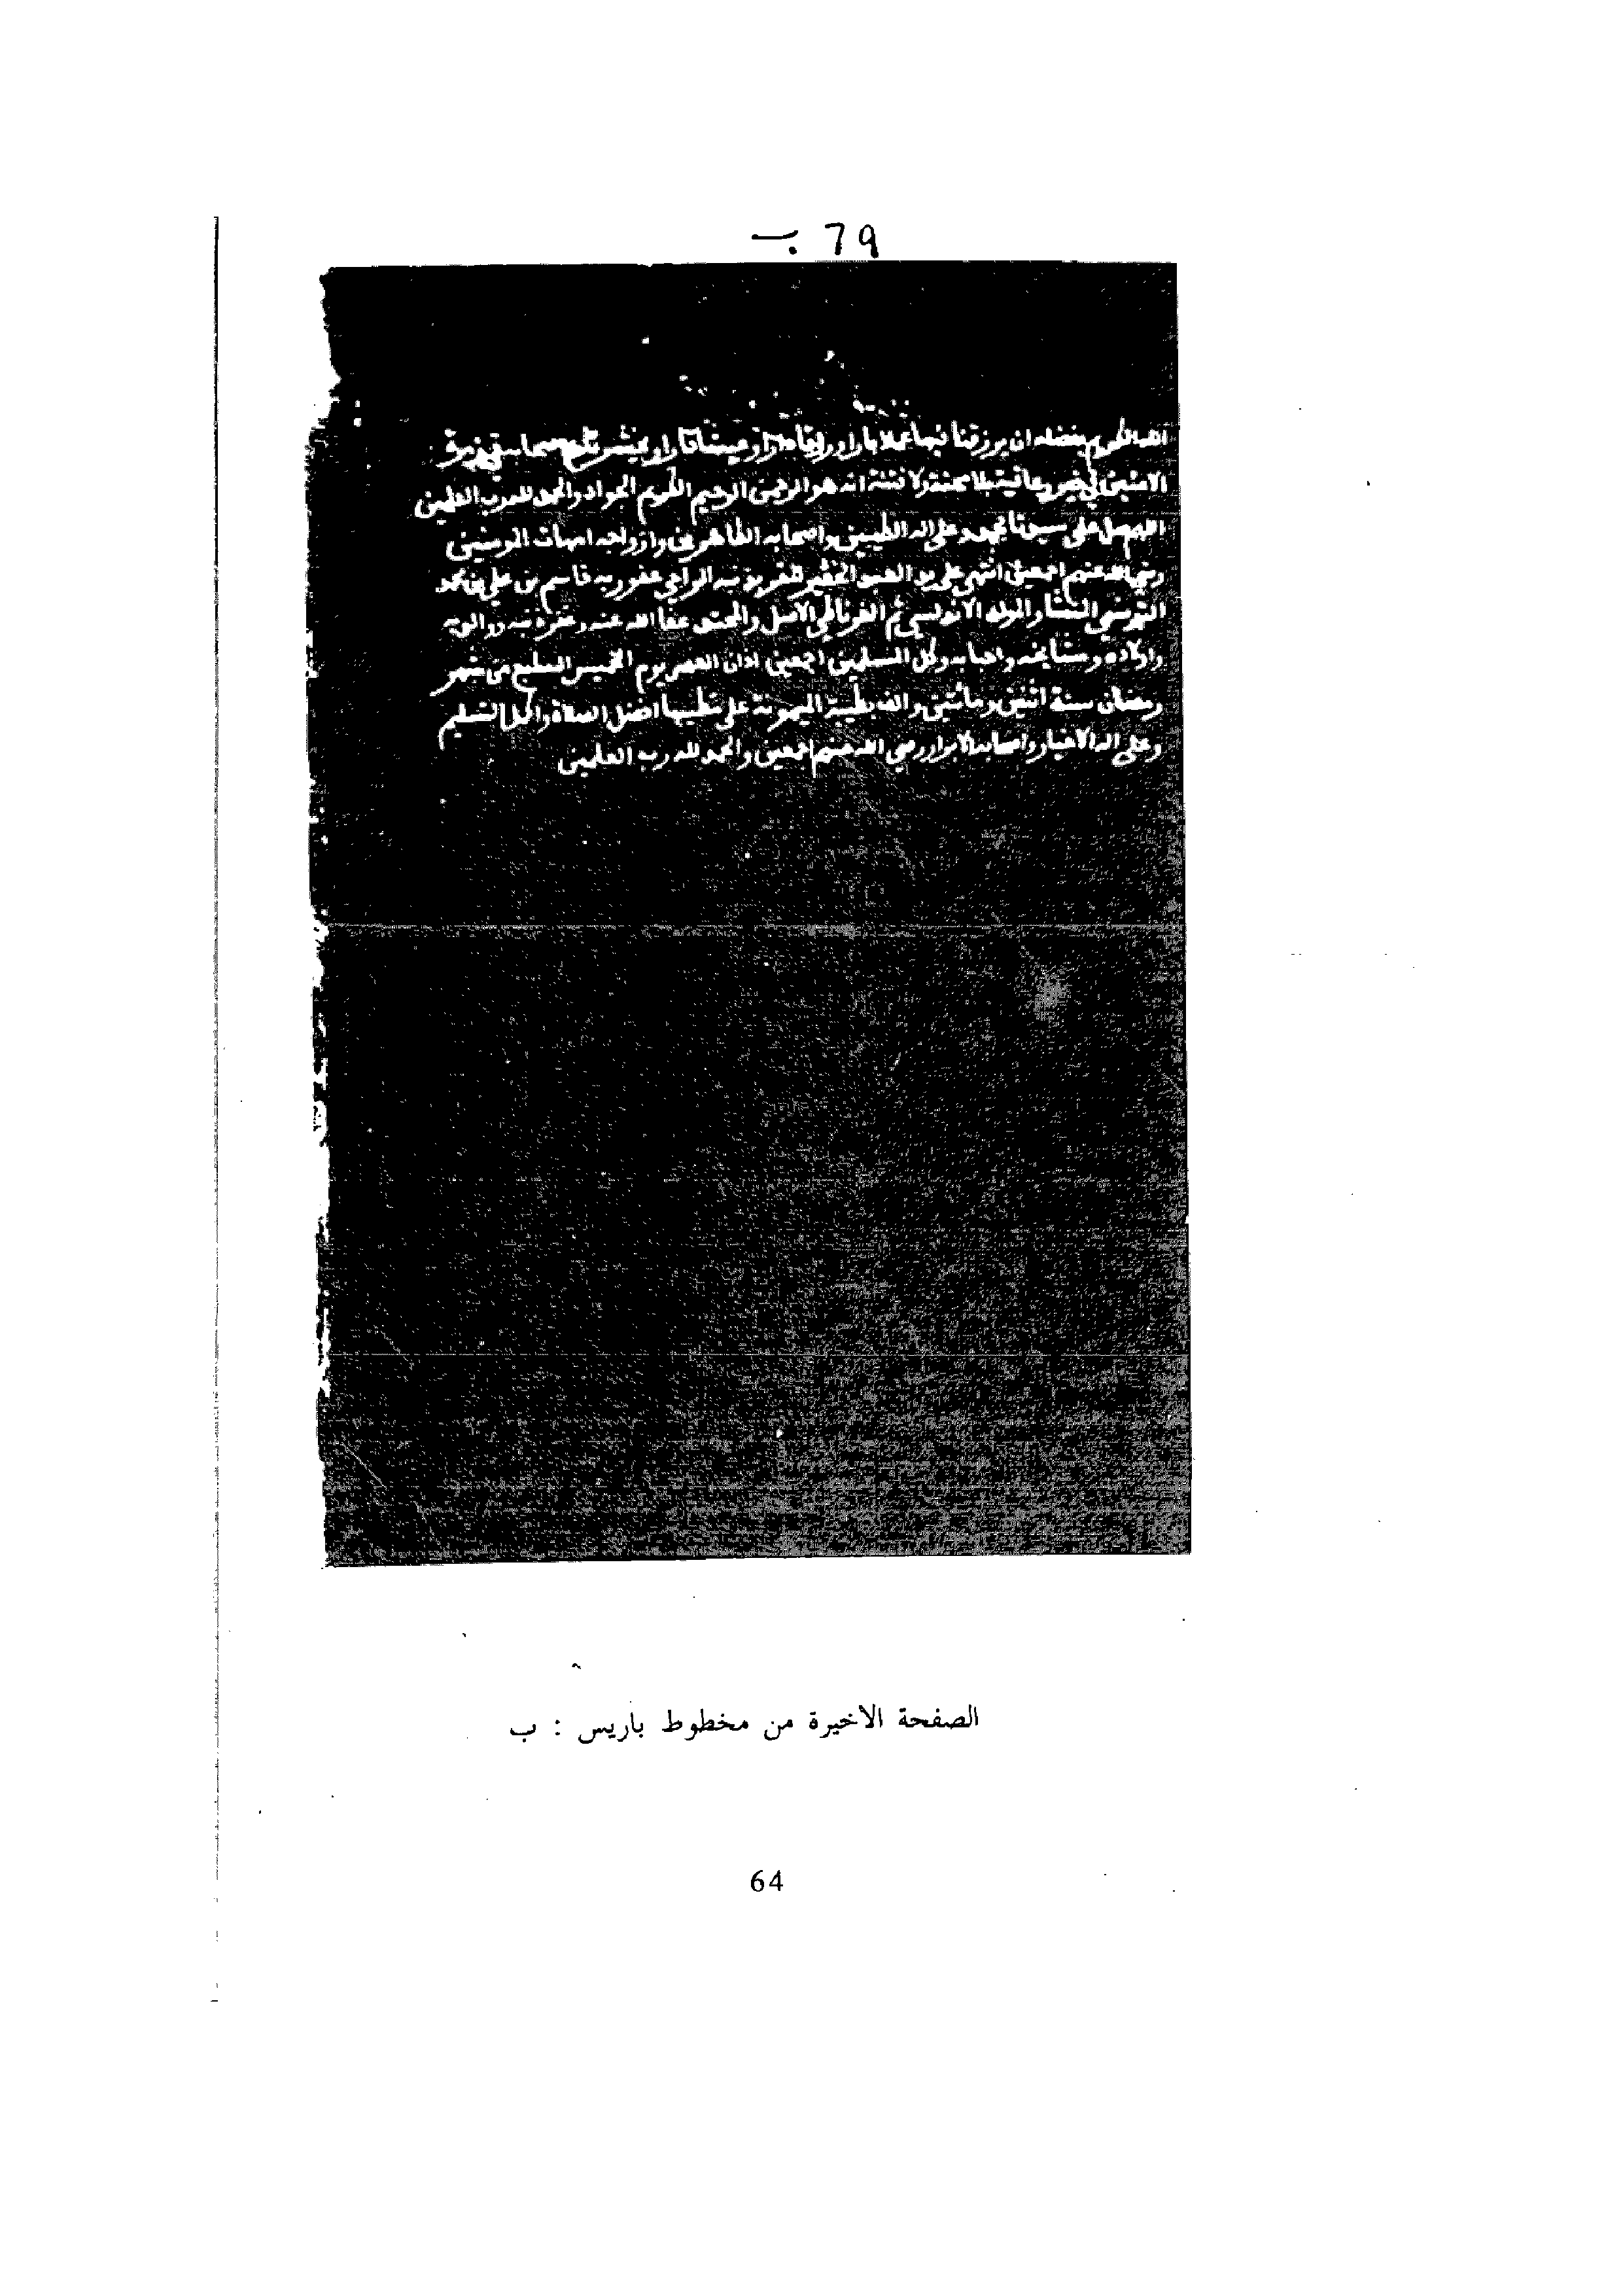 79 ب
الله الكريم بفضله ان يرزقنا
الامنين في خير وعافية بلا محنة ولا فتنة انه هو الرحمن الرحيم الكريم الجواد والحمد لله رب العلمين
اللهم صل على سيدنا محمد وعلى اله الطيبين واصحابه الطاهرين وازواجه امهات المومنين
رضي الله عنهم اجمعين انتهى على يد العبد الحقير المقر بذنبه الراجي عفو ربه قاسم بن علي بن محمد
التونسي المنشا والمولد الاندلسي ثم الغرناطي الاصل والمحتد عفا الله عنه وغفر ذنبه ووالديه
واولاده ومشايخه واحبابه وكل المسلمين اجمعين اذان العصر يوم الخميس من شهر
رمضان سنة اثنين ومائتين والف بطيبة الميمونة على افضل الصلاة واكمل التسليم
وعلى اله الاخيار واصحابه الابرار رضي الله عنهم اجمعين والحمد لله رب العلمين
الصفحة الاخيرة من مخطوط باريس : ب
64